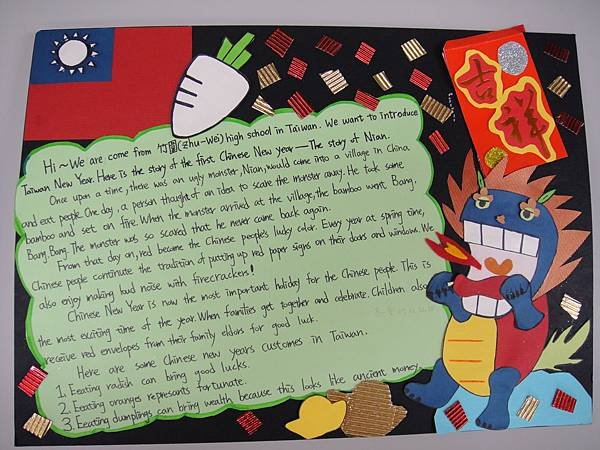 吉祥
Hi~We are come from 竹圍(Zhu-Wei) high school in Taiwan. We want to introduce
Taiwan New Year. Here is the story of the first Chinese New year — The story of Nian.
Once upon a time, there was an ugly monster, Nian, would come into a village in China
and eat people. One day, a person thought of an idea to scare the monster away. He took some
bamboo and set on fire. When the monster arrived at the village, the bamboo went Bang,
Bang, Bang. The monster was so scared that he never came back again.
From that day on, red became the Chinese people's lucky color. Every year at spring time,
Chinese people continute the tradition of putting up red paper signs on their doors and windows. We
also enjoy making loud noise with firecrackers!
Chinese New Year is now the most important holiday for the Chinese people. This is
the most exciting time of the year. When families get together and celebrate. Children also
receive red envelopes from their family elders for good luck.
Here are some Chinese new years customes in Taiwan.
1. Eeating radish can bring good lucks.
2. Eeating oranges represants fortunate.
3. Eeating dumplings can bring wealth because this looks like ancient money.